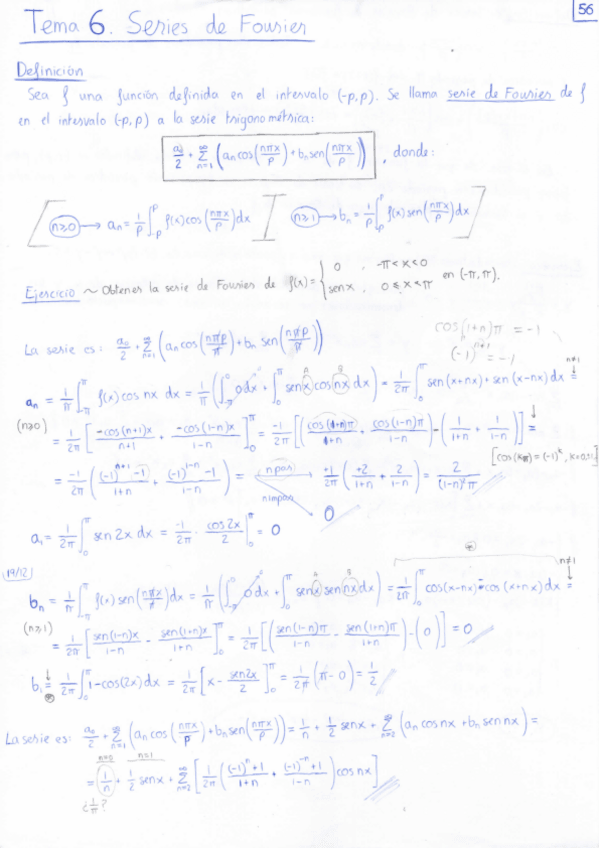 56
Tema 6. Series de Fourier
Definición
Sea f una función definida en el intervalo (-p,p). Se llama serie de Fourier de f
en el intervalo (-p,p) a la serie trigonométrica:
a₀/2 + ∑_{n=1}^{∞} (aₙ cos(nπx/p) + bₙ sen(nπx/p)) , donde:
n≥0 → aₙ = 1/p ∫_{-p}^{p} f(x) cos(nπx/p) dx   n≥1 → bₙ = 1/p ∫_{-p}^{p} f(x) sen(nπx/p) dx
Ejercicio ~ Obtener la serie de Fourier de f(x) = { 0 , -π<x<0 ; senx , 0≤x<π en (-π,π).
cos(1+n)π = -1
(-1)^{n+1} = -1
La serie es: a₀/2 + ∑_{n=1}^{∞} (aₙ cos(nπp/π) + bₙ sen(nπp/π))
aₙ = 1/π ∫_{-π}^{π} f(x) cos nx dx = 1/π (∫_{-π}^{0} 0dx + ∫_{0}^{π} senx cos nx dx) = 1/2π ∫_{0}^{π} sen(x+nx) + sen(x-nx) dx = n≠1
(n≥0) = 1/2π [-cos(n+1)x/n+1 + -cos(1-n)x/1-n]_{0}^{π} = -1/2π [(cos(1+n)π/1+n + cos(1-n)π/1-n) - (1/1+n + 1/1-n)] =
[cos(kπ) = (-1)^k, k=0,1]
= -1/2π ((-1)^{n+1} -1/1+n + (-1)^{1-n} -1/1-n) = n par → +1/2π (+2/1+n + 2/1-n) = 2/(1-n)²π
n impar → 0
a₁ = 1/2π ∫_{0}^{π} sen 2x dx = -1/2π · cos2x/2 ]_{0}^{π} = 0
19/12
bₙ = 1/π ∫_{-π}^{π} f(x) sen(nπx/π) dx = 1/π (∫_{-π}^{0} 0dx + ∫_{0}^{π} senx sen nx dx) = 1/2π ∫_{0}^{π} cos(x-nx) - cos(x+nx) dx = n≠1
(n≥1) = 1/2π [sen(1-n)x/1-n - sen(1+n)x/1+n]_{0}^{π} = 1/2π [(sen(1-n)π/1-n - sen(1+n)π/1+n) - (0)] = 0
b₁ = 1/2π ∫_{0}^{π} 1-cos(2x) dx = 1/2π [x - sen2x/2]_{0}^{π} = 1/2π (π-0) = 1/2
La serie es: a₀/2 + ∑_{n=1}^{∞} (aₙ cos(nπx/p) + bₙ sen(nπx/p)) = 1/π + 1/2 senx + ∑_{n=2}^{∞} (aₙ cos nx + bₙ sen nx) =
n=0 n=1
= 1/π + 1/2 senx + ∑_{n=2}^{∞} [1/2π ((-1)^n +1/1+n + (-1)^{-n} +1/1-n) cos nx]
¿1/π?